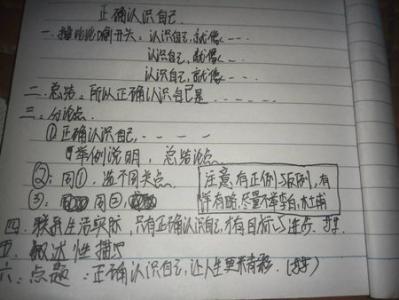 正确认识自己.
一.排比论喻开头: 认识自己,就像一…
认识自己,就像一…
认识自己,就像一…
二.总结:所以正确认识自己是……
三.分论点.
①正确认识自己,————
举例说明,总结论点
②:同①,选不同类点
③:同②
注意有正例与反例,有详有略,尽量不举李白,杜甫
四.联系生活实际,只有正确认识自己,才有目标与进步.
五.叙述性描写
六:点题:正确认识自己,让人生更精彩.